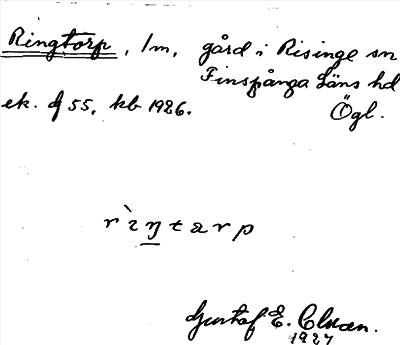 Ringtorp, 1/m, gård i Risinge sn
Finspånga Läns hd
ek. bl 55, kb 1926. Ögl.
rìŋtarp
Gustaf E. Clason.
1927